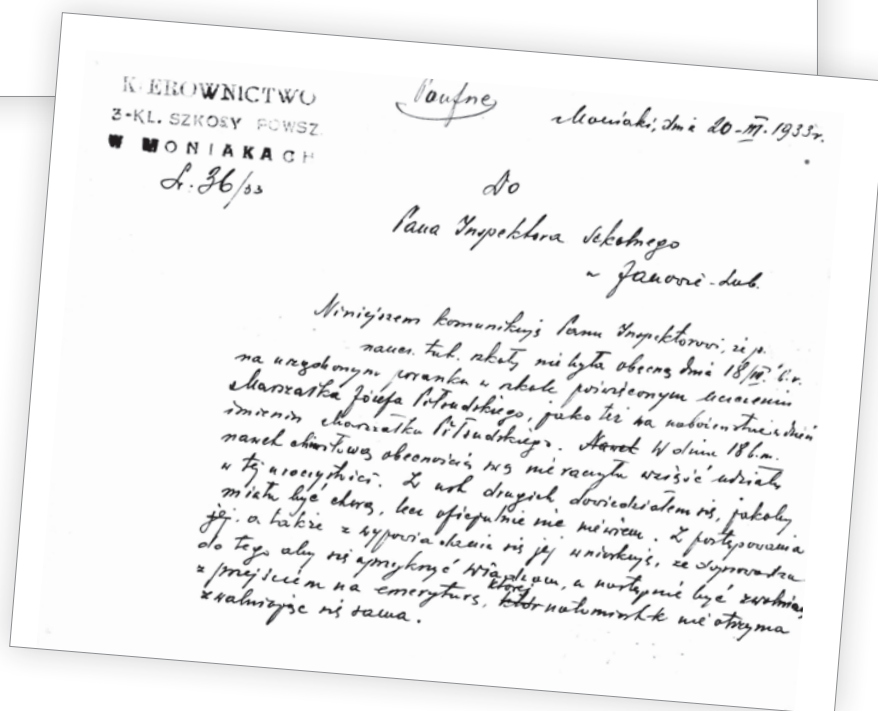 KIEROWNICTWO
3-KL. SZKOŁY POWSZ.
W MONIAKACH
L. 36/33
Poufne
Moniaki, dnia 20-III-1933r.
Do
Pana Inspektora Szkolnego
w Janowie-Lub.
Niniejszem komunikuję Panu Inspektorowi, że p.
naucz. tut. szkoły nie była obecną dnia 18/III. b.r.
na urządzonym poranku w szkole poświęconym uczczeniu
Marszałka Józefa Piłsudskiego, jako też na nabożeństwie w dzień
imienin Marszałka Piłsudskiego. Nawet W dniu 18 b.m.
nawet chwilową obecnością swą nie raczyła wziąść udziału
w tej uroczystości. Z ust drugich dowiedziałem się, jakoby
miała być chorą, lecz oficjalnie nic nie wiem. Z postępowania
jej, a także z wypowiadania się jej wnioskuję, że doprowadza
do tego aby się uprzykrzyć władzom, a następnie być zwolnioną
z przejściem na emeryturę, której natomiast nie otrzyma
zwalniając się sama.